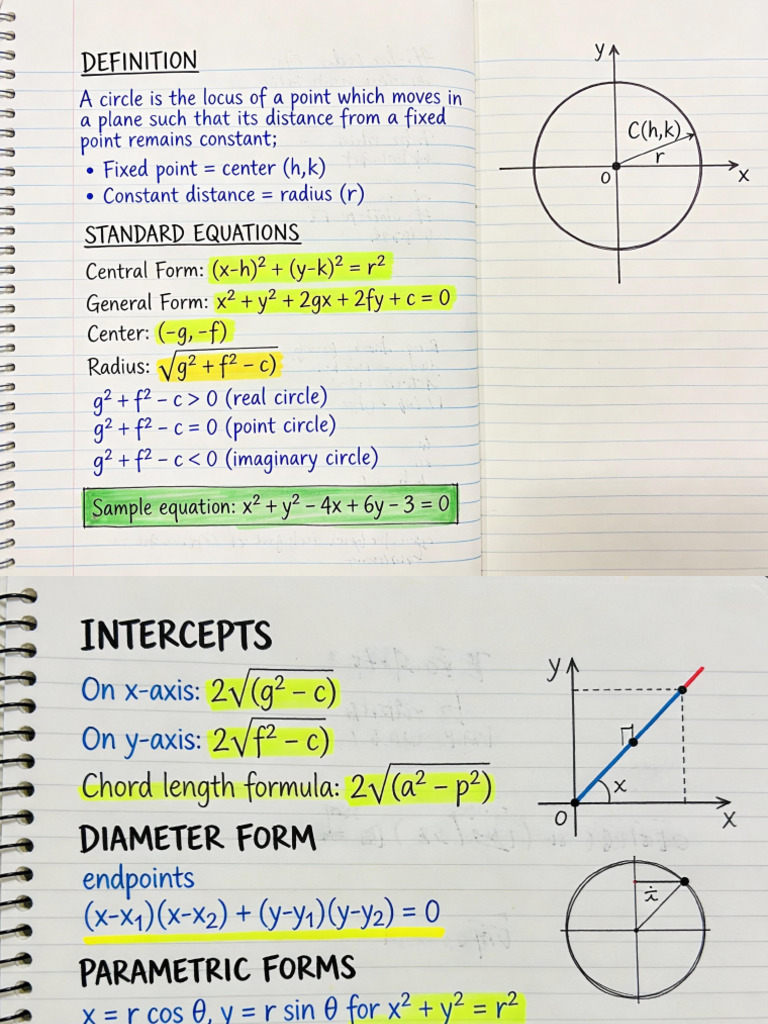 DEFINITION
A circle is the locus of a point which moves in
a plane such that its distance from a fixed
point remains constant;
• Fixed point = center (h,k)
• Constant distance = radius (r)
STANDARD EQUATIONS
Central Form: (x-h)² + (y-k)² = r²
General Form: x² + y² + 2gx + 2fy + c = 0
Center: (-g, -f)
Radius: √g² + f² – c)
g² + f² – c > 0 (real circle)
g² + f² – c = 0 (point circle)
g² + f² – c < 0 (imaginary circle)
Sample equation: x² + y² – 4x + 6y – 3 = 0
y
C(h,k)
r
O
x
INTERCEPTS
On x-axis: 2√(g² – c)
On y-axis: 2√f² – c)
Chord length formula: 2√(a² – p²)
DIAMETER FORM
endpoints
(x-x₁)(x-x₂) + (y-y₁)(y-y₂) = 0
PARAMETRIC FORMS
x = r cos θ, y = r sin θ for x² + y² = r²
y
x
O
x